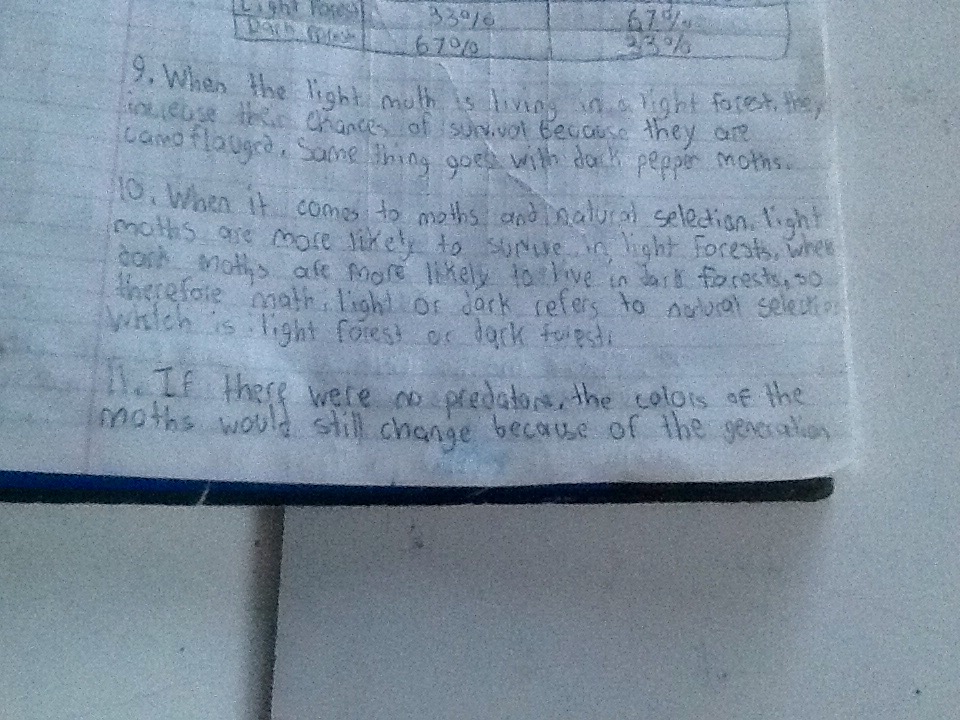 Light Forest 33% 67%
Dark Forest 67% 33%
9. When the light moth is living in a light forest, they
increase their chances of survival Because they are
camoflauged. Same thing goes with dark pepper moths.
10. When it comes to moths and natural selection, light
moths are more likely to survive in light forests, when
dark moths are more likely to live in dark forests, so
therefore moth, light or dark refers to natural selection
which is light forest or dark forest.
11. If there were no predators, the colors of the
moths would still change because of the generation